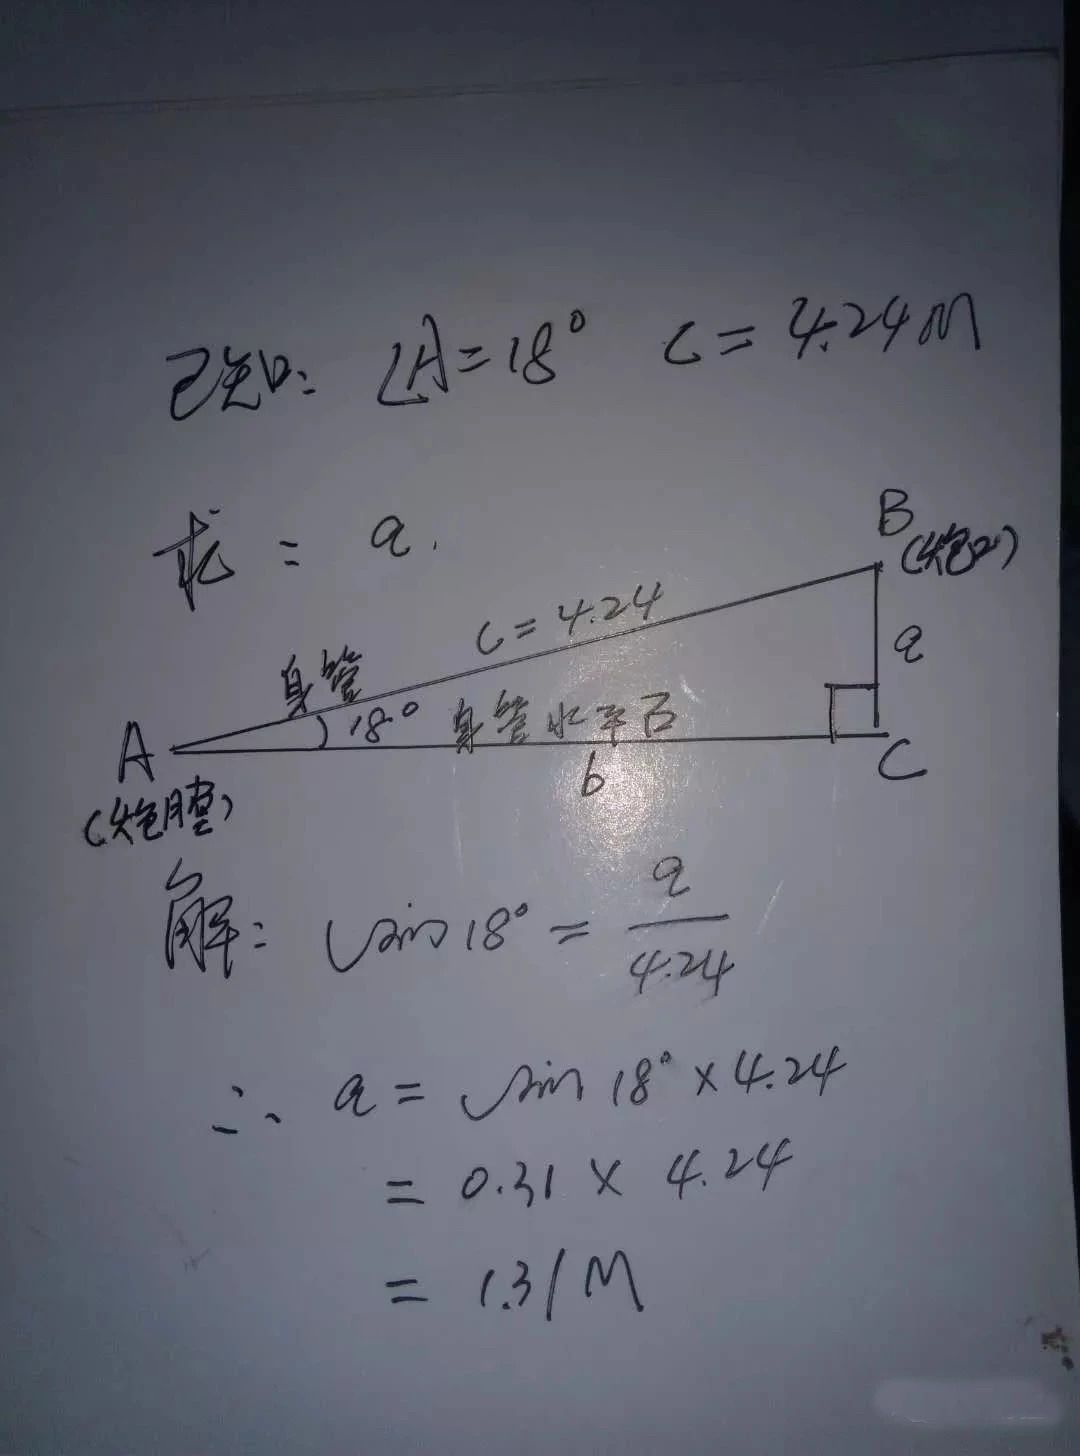 已知: ∠A=18° C=4.24M
求: a.
B
(炮口)
C=4.24
身管
a
18°
身管水平后
A
b
C
(炮膛)
解: sin18°=a/4.24
∴ a=sin18°×4.24
=0.31×4.24
=1.31M